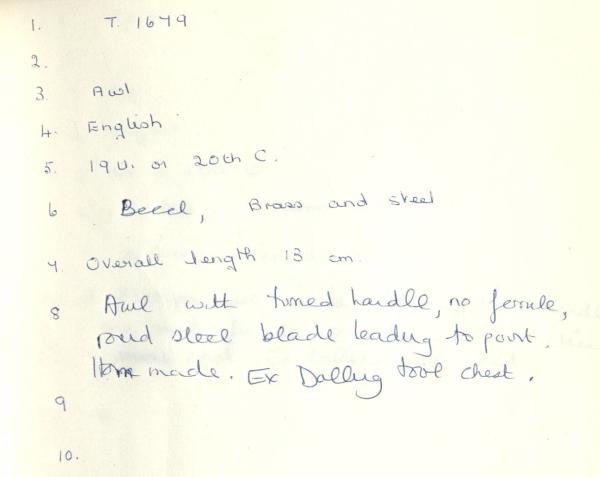 1. T. 1679
2.
3. Awl
4. English
5. 19th. or 20th C.
6 Beech, Brass and steel
7. Overall length 13 cm.
8 Awl with turned handle, no ferrule,
round steel blade leading to point.
Home made. Ex Dalling tool chest.
9
10.